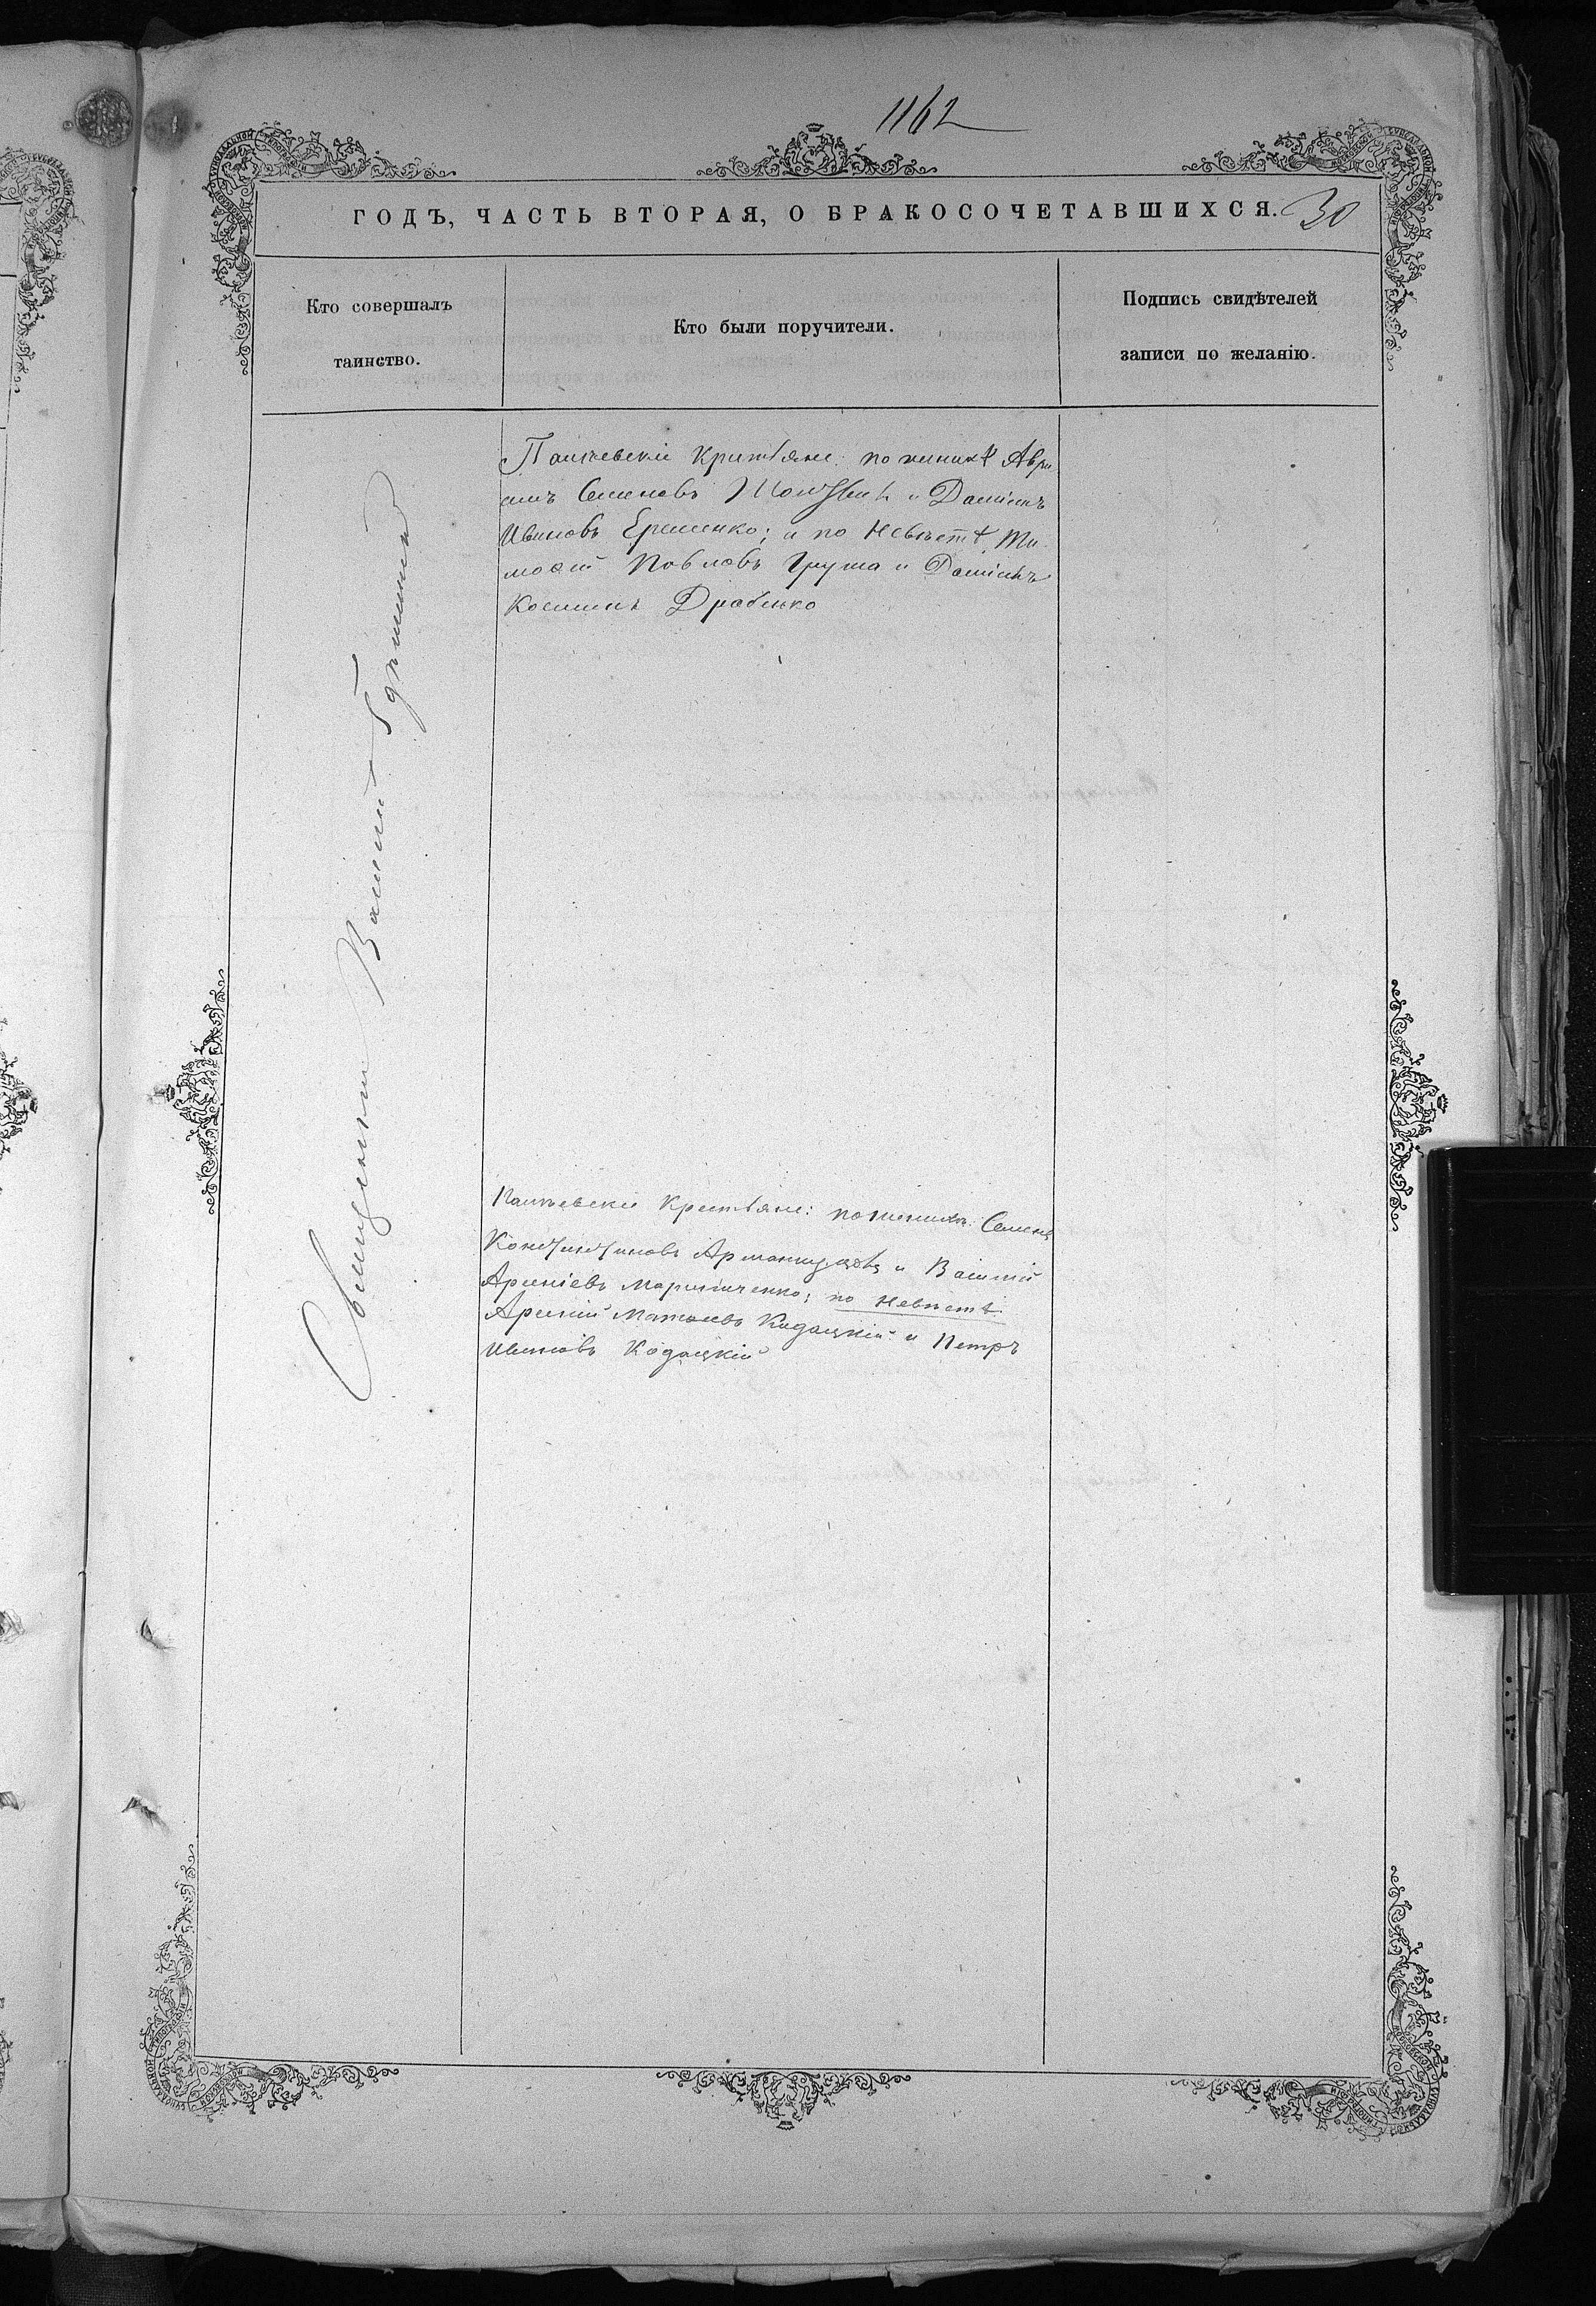 1162
ГОДЪ, ЧАСТЬ ВТОРАЯ, О БРАКОСОЧЕТАВШИХСЯ. 30
Кто совершалъ
таинство.
Кто были поручители.
Подпись свидѣтелей
записи по желанію.
Священникъ Василій
Крестьяне: по женихѣ Авра
амъ Семеновъ и Даміанъ
Ивановъ Еременко; и по невѣстѣ Ти
моѳей Павловъ Груша и Даміанъ
Косминъ Драбенко
Крестьяне: по женихѣ: Семенъ
Константиновъ и Василій
Арсеніевъ Мариниченко; по невѣстѣ
Арсеній Матѳіевъ Кодацкій и Петръ
Ивановъ Кодацкій